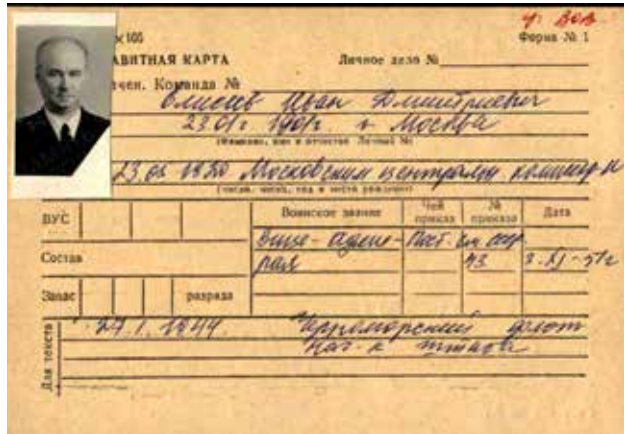 у. ВОВ
×105 Форма № 1
АВИТНАЯ КАРТА Личное дело №
чен. Команда №
Елисеев Иван Дмитриевич
23.01. 1901г. г Москва
(Фамилия, имя и отчество Личный №)
23.05 1920 Московским центральн
(число, месяц, год и место рождения)
ВУС Воинское звание Чей приказ № приказа Дата
Вице-адми- Пост. См ссср
Состав рал 43 3.XI-51г
Запас разряда
Для текста 27.1.1944. Черноморский флот
нач-к штаба